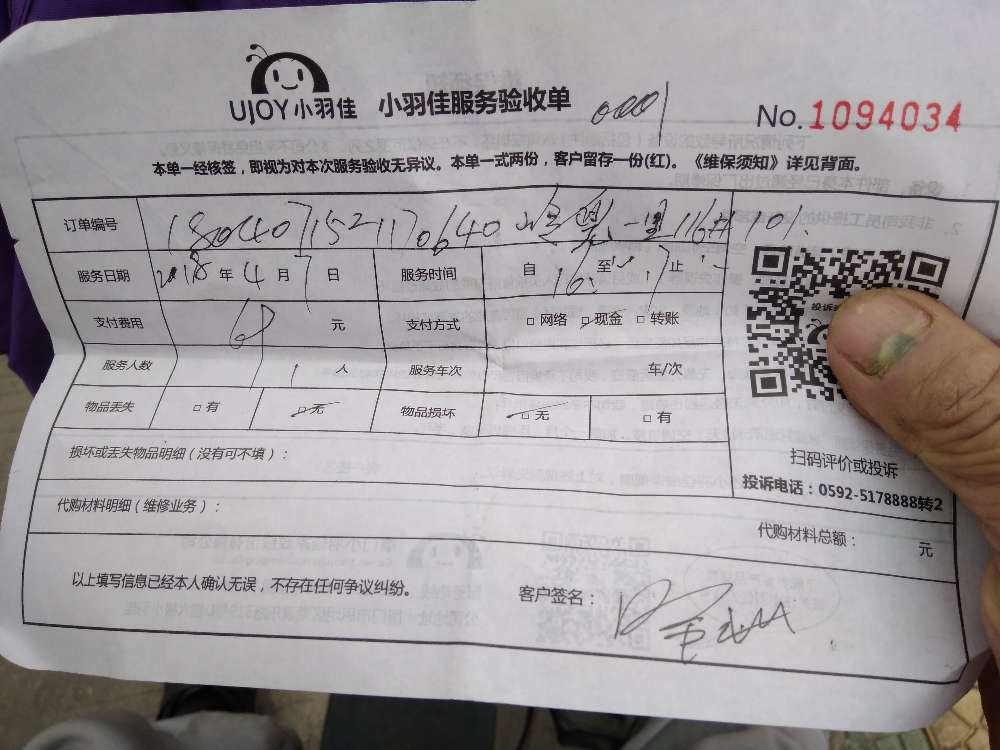 UJOY小羽佳 小羽佳服务验收单 0001 No.1094034
本单一经核签,即视为对本次服务验收无异议。本单一式两份,客户留存一份(红)。《维保须知》详见背面。
订单编号 1804071521170640 一里116# 101
服务日期 2018 年 4 月 7 日 服务时间 自 16: 至 17 止
支付费用 元 支付方式 □网络 □现金 □转账
服务人数 1 人 服务车次 车/次
物品丢失 □有 □无 物品损坏 □无 □有
投诉
扫码评价或投诉
投诉电话:0592-5178888转2
损坏或丢失物品明细(没有可不填):
代购材料明细(维修业务): 代购材料总额: 元
以上填写信息已经本人确认无误,不存在任何争议纠纷。 客户签名: